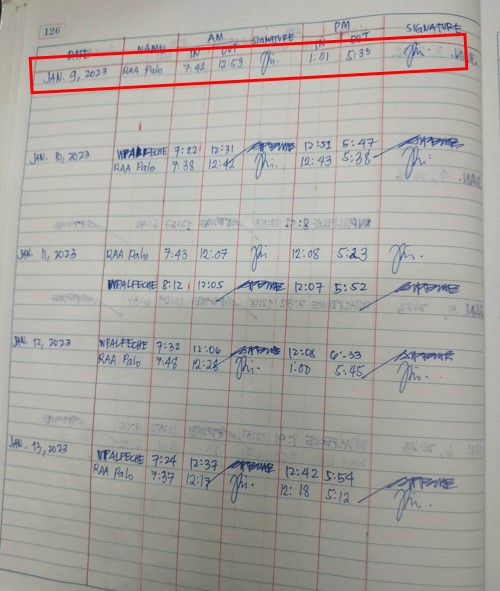 126
AM PM
DATE NAME IN OUT SIGNATURE IN OUT SIGNATURE
JAN. 9, 2023 RAA Palo 7:42 12:53 1:01 5:33
JAN. 10, 2023 WPALFECHE 7:22 12:31 12:51 5:47
RAA Palo 7:38 12:42 12:43 5:38
JAN. 11, 2023 RAA Palo 7:43 12:07 12:08 5:23
WPALFECHE 8:12 12:05 12:07 5:52
JAN. 12, 2023 WPALFECHE 7:32 12:06 12:08 6:33
RAA Palo 7:48 12:28 1:00 5:45
JAN. 13, 2023 WPALFECHE 7:24 12:37 12:42 5:54
RAA Palo 7:37 12:17 12:18 5:12